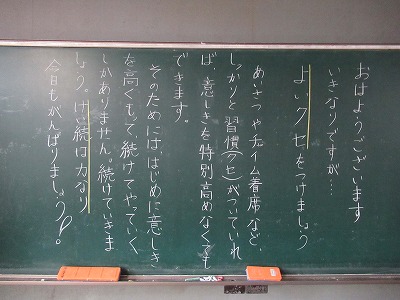 おはようございます
いきなりですが…
よいクセをつけましょう
あいさつやタイム着席など、
しっかりと習慣(クセ)がついていれ
ば、意しきを特別高めなくても
できます。
そのためには、はじめに意しき
を高くもって、続けてやっていく
しかありません。続けていきま
しょう。けい続は力なり
今日もがんばりましょう。